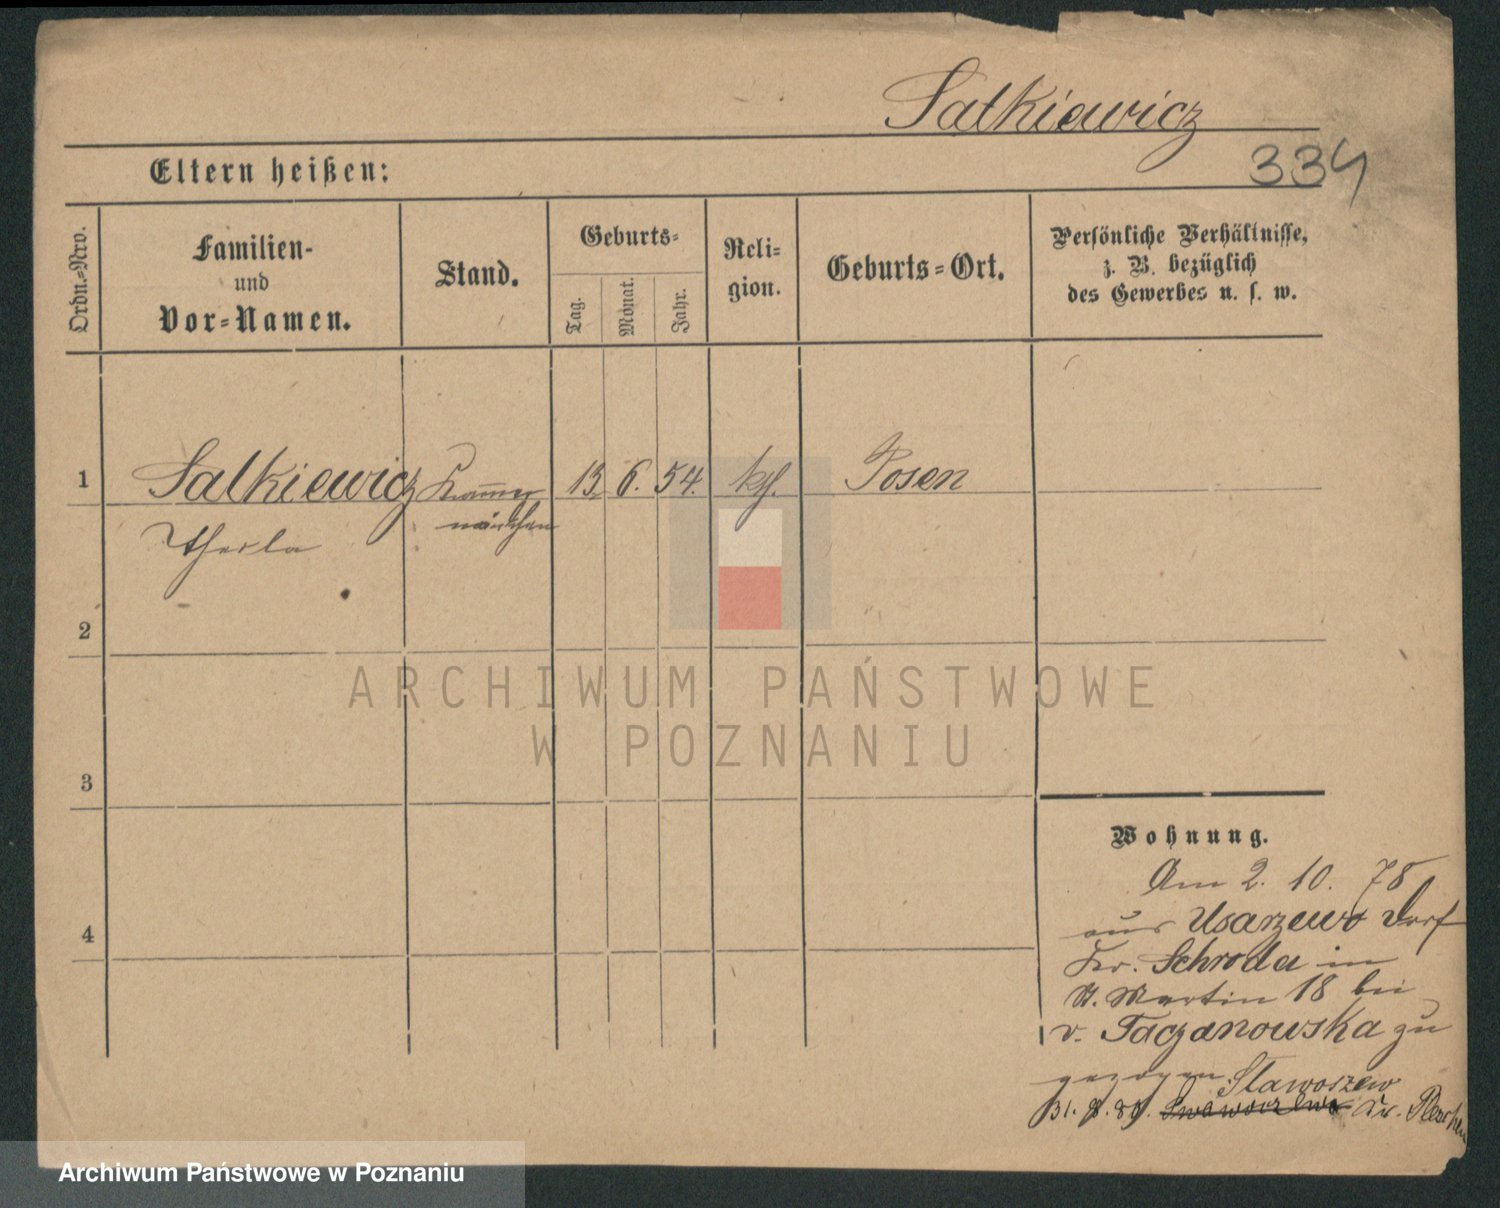 Salkiewicz
334
Eltern heißen:
Ordn.-Nro.
Familien-
und
Vor-Namen.
Stand.
Geburts-
Tag.
Monat.
Jahr.
Reli-
gion.
Geburts-Ort.
Persönliche Verhältnisse,
z. B. bezüglich
des Gewerbes u. s. w.
1
Salkiewicz
Kammer
13. 6. 54.
kth.
Posen
Thecla
mädchen
2
3
4
Wohnung.
Am 2. 10. 78
aus Usarzewo Dorf
Kr. Schroda in
St. Martin 18 bei
v. Taczanowska zu
gezogen
Staworzew
31. 8. 80. Kr. Pleschen
ARCHIWUM PAŃSTWOWE
W POZNANIU
Archiwum Państwowe w Poznaniu